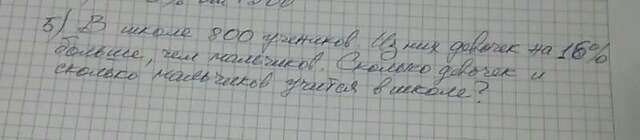 5) В школе 800 учеников Из них девочек на 16%
больше, чем мальчиков. Сколько девочек и
сколько мальчиков учится в школе?